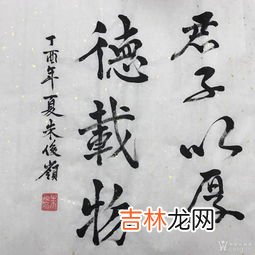 君子以厚
德載物
丁酉年夏朱俊嶺
吉林龙网